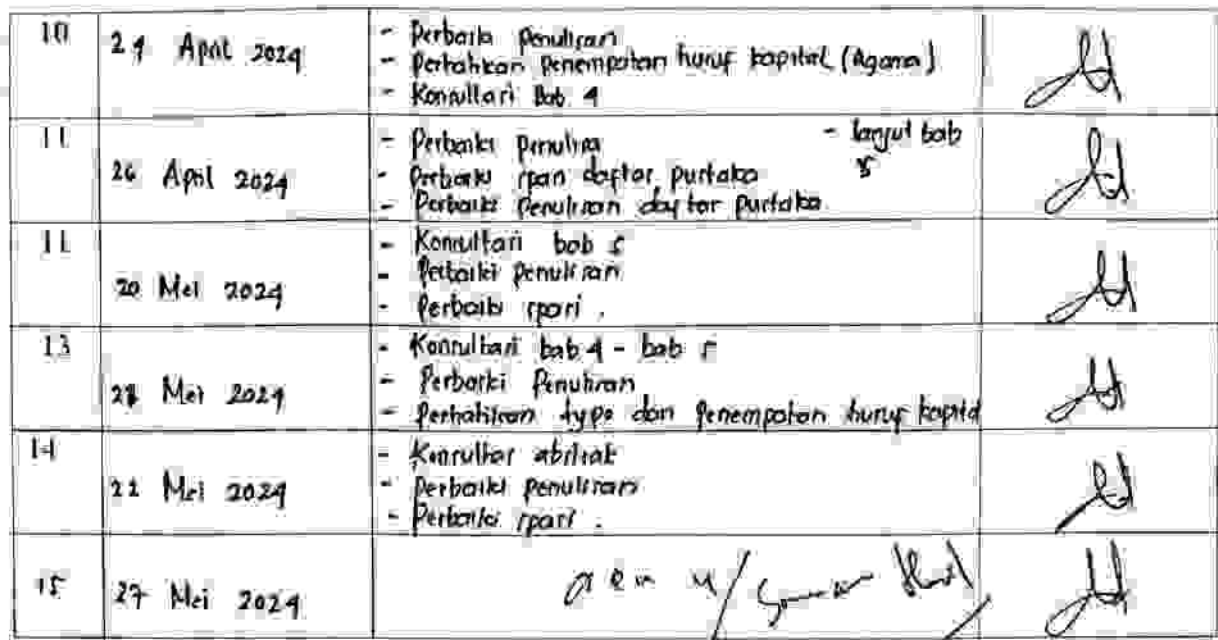 10
24 April 2024
- Perbaiki penulisan
- Perhatikan penempatan huruf kapital (Agama)
- Konsultasi Bab 4
11
26 April 2024
- Perbaiki penulisa
- lanjut bab
5
- Perbaiki spasi daftar pustaka
- Perbaiki penulisan daftar pustaka
20 Mei 2024
- Konsultasi bab 5
- Perbaiki penulisan
- Perbaiki spasi .
13
Mei 2024
- Konsultasi bab 4 - bab 5
- Perbaiki Penulisan
- Perhatikan type dan penempatan huruf kapital
14
22 Mei 2024
- Konsultasi abstrak
- Perbaiki penulisan
- Perbaiki spasi .
15
27 Mei 2024